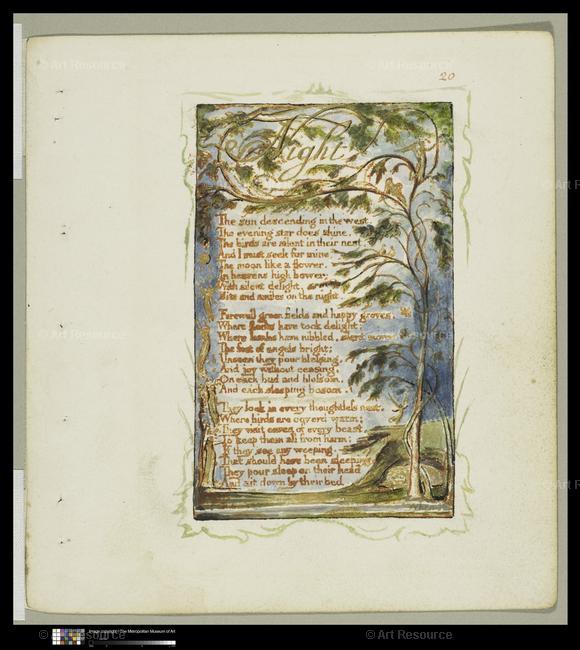 © Art Resource
© Art Resource
© Art Resource
20
Night
The sun descending in the west,
The evening star does shine.
The birds are silent in their nest
And I must seek for mine,
The moon like a flower,
In heavens high bower;
With silent delight,
Sits and smiles on the night
Farewell green fields and happy groves,
Where flocks have took delight;
Where lambs have nibbled, silent moves
The feet of angels bright;
Unseen they pour blessing,
And joy without ceasing,
On each bud and blossom,
And each sleeping bosom.
They look in every thoughtless nest,
Where birds are coverd warm;
They visit caves of every beast,
To keep them all from harm;
If they see any weeping,
That should have been sleeping
They pour sleep on their head
And sit down by their bed
Image copyright ©The Metropolitan Museum of Art
© Art Resource
© Art Resource